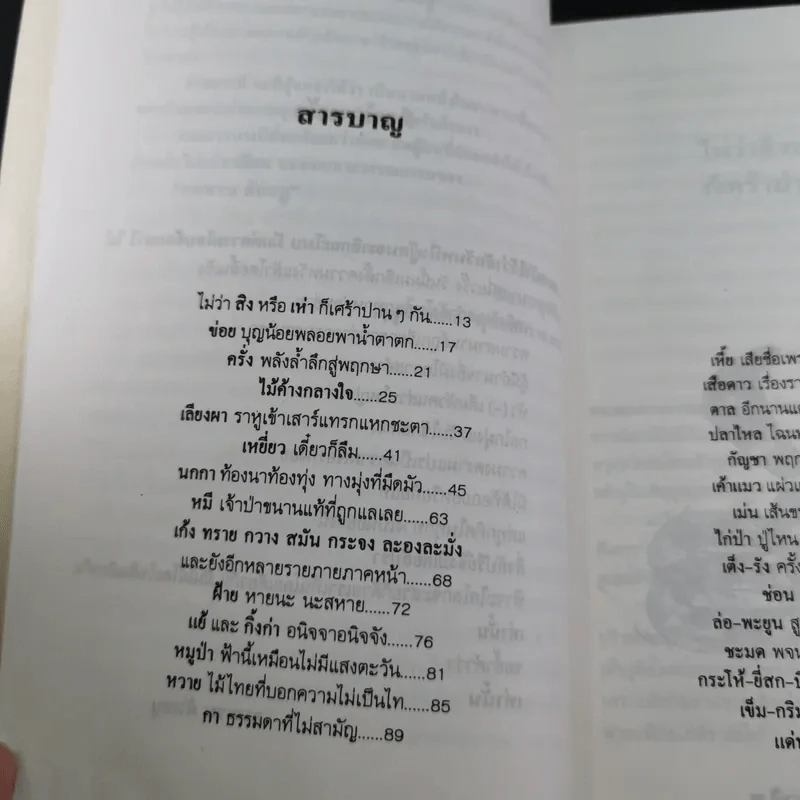 สารบาญ
ไม่ว่า สิง หรือ เห่า ก็เศร้าปาน ๆ กัน......13
ข่อย บุญน้อยพลอยพาน้ำตาตก......17
ครั่ง พลังล้ำลึกสู่พฤกษา......21
ไม้ค้างกลางใจ......25
เลียงผา ราหูเข้าเสาร์แทรกแหกชะตา......37
เหยี่ยว เดี๋ยวก็ลืม......41
นกกา ท้องนาท้องทุ่ง ทางมุ่งที่มืดมัว......45
หมี เจ้าป่าขนานแท้ที่ถูกแลเลย......63
เก้ง ทราย กวาง สมัน กระจง ละองละมั่ง
และยังอีกหลายรายภายภาคหน้า......68
ฝ้าย หายนะ นะสหาย......72
แย้ และ กิ้งก่า อนิจจาอนิจจัง......76
หมูป่า ฟ้านี้เหมือนไม่มีแสงตะวัน......81
หวาย ไม้ไทยที่บอกความไม่เป็นไท......85
กา ธรรมดาที่ไม่สามัญ......89
เหี้ย เสียชื่อเพร
เสือดาว เรื่องรา
ตาล อีกนานแต่
ปลาไหล ไฉนห
กัญชา พฤก
เค้าแมว แผ่วแ
เม่น เส้นข
ไก่ป่า ปู่ไหน
เต็ง-รัง ครั้ง
ช่อน
ล่อ-พะยูน สู
ชะมด พจน
กระโห้-ยี่สก-บึ
เข็ม-กริม
แด่น